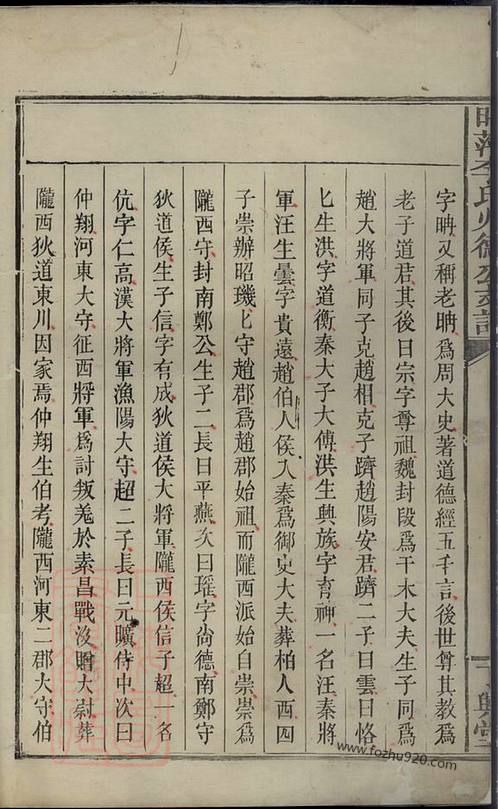 字聃又稱老聃爲周大史著道德經五千言後世尊其教爲
老子道君其後曰宗字尊祖魏封段爲干木大夫生子同爲
趙大將軍同子克趙相克子躋趙陽安君躋二子曰雲曰恪
恪生洪字道衡秦太子大傅洪生興族字育神一名汪秦將
軍汪生曇字貴遠趙伯人侯入秦爲御史大夫葬柏人西四
子崇辦昭璣璣守趙郡爲趙郡始祖而隴西派始自崇崇爲
隴西守封南鄭公生子二長曰平燕次曰瑤字尙德南鄭守
狄道侯生子信字有成狄道侯大將軍隴西侯信子超一名
伉字仁高漢大將軍漁陽大守超二子長曰元曠侍中次曰
仲翔河東大守征西將軍爲討叛羗於素昌戰沒贈大尉葬
隴西狄道東川因家焉仲翔生伯考隴西河東二郡大守伯
www.fozhu920.com